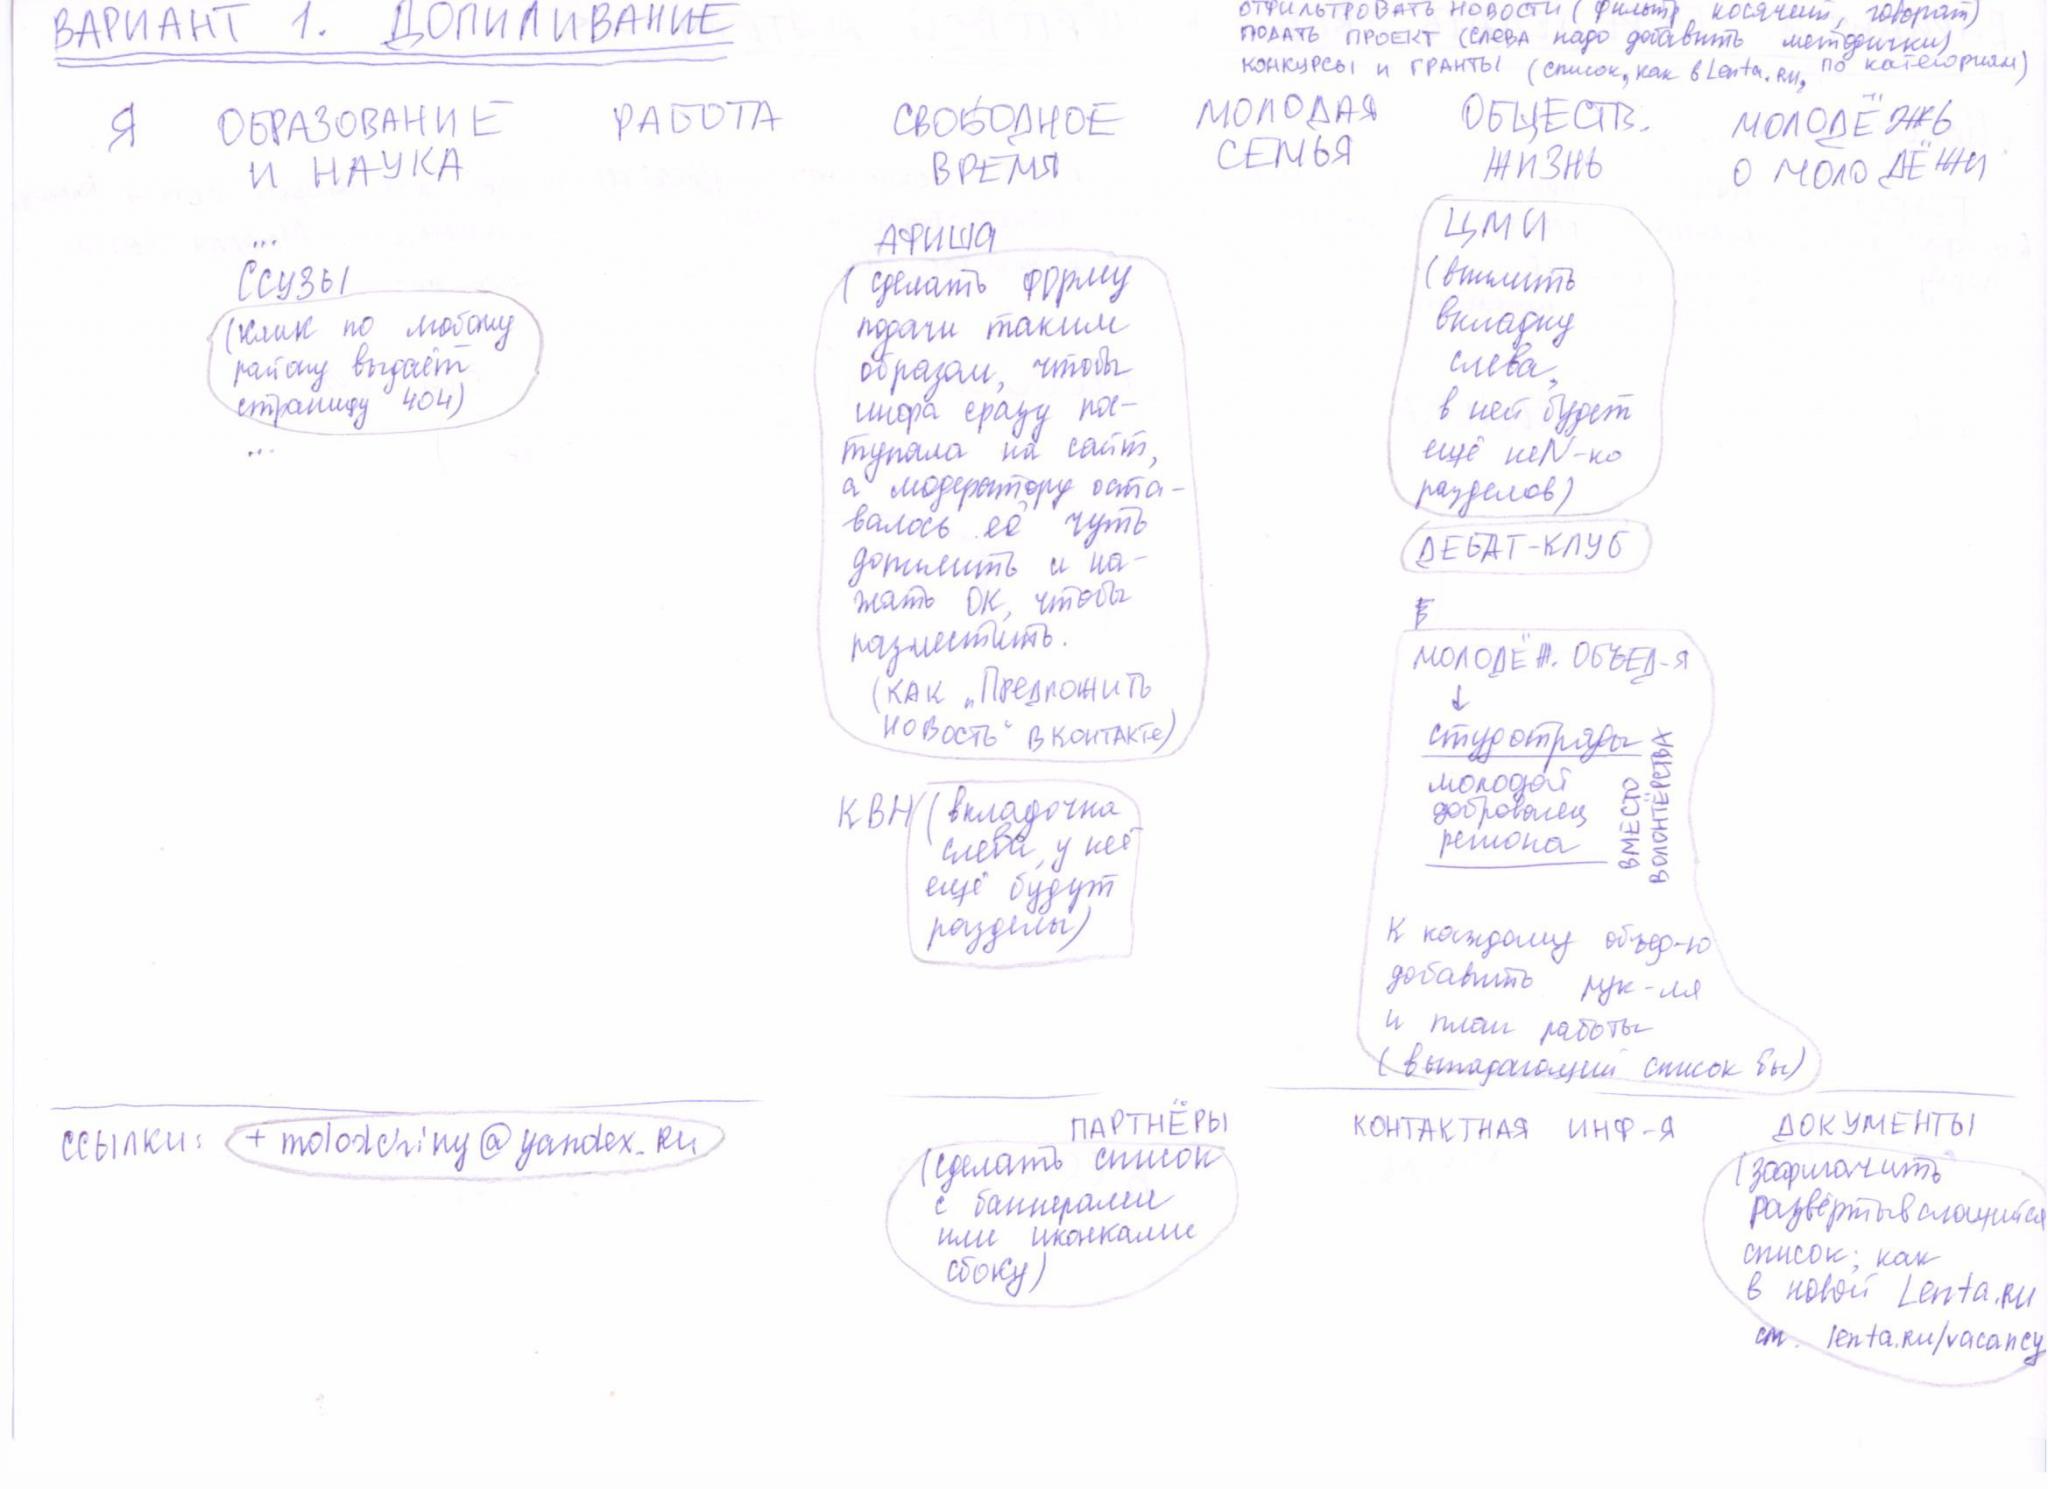 ВАРИАНТ 1. ДОПИЛИВАНИЕ
ОТФИЛЬТРОВАТЬ НОВОСТИ (фильтр косячит, говорят)
ПОДАТЬ ПРОЕКТ (СЛЕВА надо добавить методички)
КОНКУРСЫ И ГРАНТЫ (список, как в Lenta.ru, по категориям)
Я
ОБРАЗОВАНИЕ
И НАУКА
РАБОТА
СВОБОДНОЕ
ВРЕМЯ
МОЛОДАЯ
СЕМЬЯ
ОБЩЕСТВ.
ЖИЗНЬ
МОЛОДЁЖЬ
О МОЛОДЁЖИ
...
ССУЗЫ
(клик по любому
району выдаёт
страницу 404)
...
АФИША
(сделать форму
подачи таким
образом, чтобы
инфа сразу пос-
тупала на сайт,
а модератору оста-
валось её чуть
допилить и на-
жать ОК, чтобы
разместить.
(КАК „ПРЕДЛОЖИТЬ
НОВОСТЬ" ВКОНТАКТЕ)
КВН (вкладочка
слева, у неё
ещё будут
разделы)
ЦМИ
(впилить
вкладку
слева,
в ней будет
ещё неN-ко
разделов)
ДЕБАТ-КЛУБ
МОЛОДЁЖ. ОБЪЕД-Я
↓
студотряды
молодой
доброволец
региона
ВМЕСТО
ВОЛОНТЁРСТВА
К каждому объед-ю
добавить рук-ля
и план работы
(выпадающий список бы)
ССЫЛКИ: + molodchiny@yandex.ru
ПАРТНЁРЫ
(сделать список
с баннерами
или иконками
сбоку)
КОНТАКТНАЯ ИНФ-Я
ДОКУМЕНТЫ
(зафигачить
развёртывающийся
список, как
в новой Lenta.ru
см. lenta.ru/vacancy